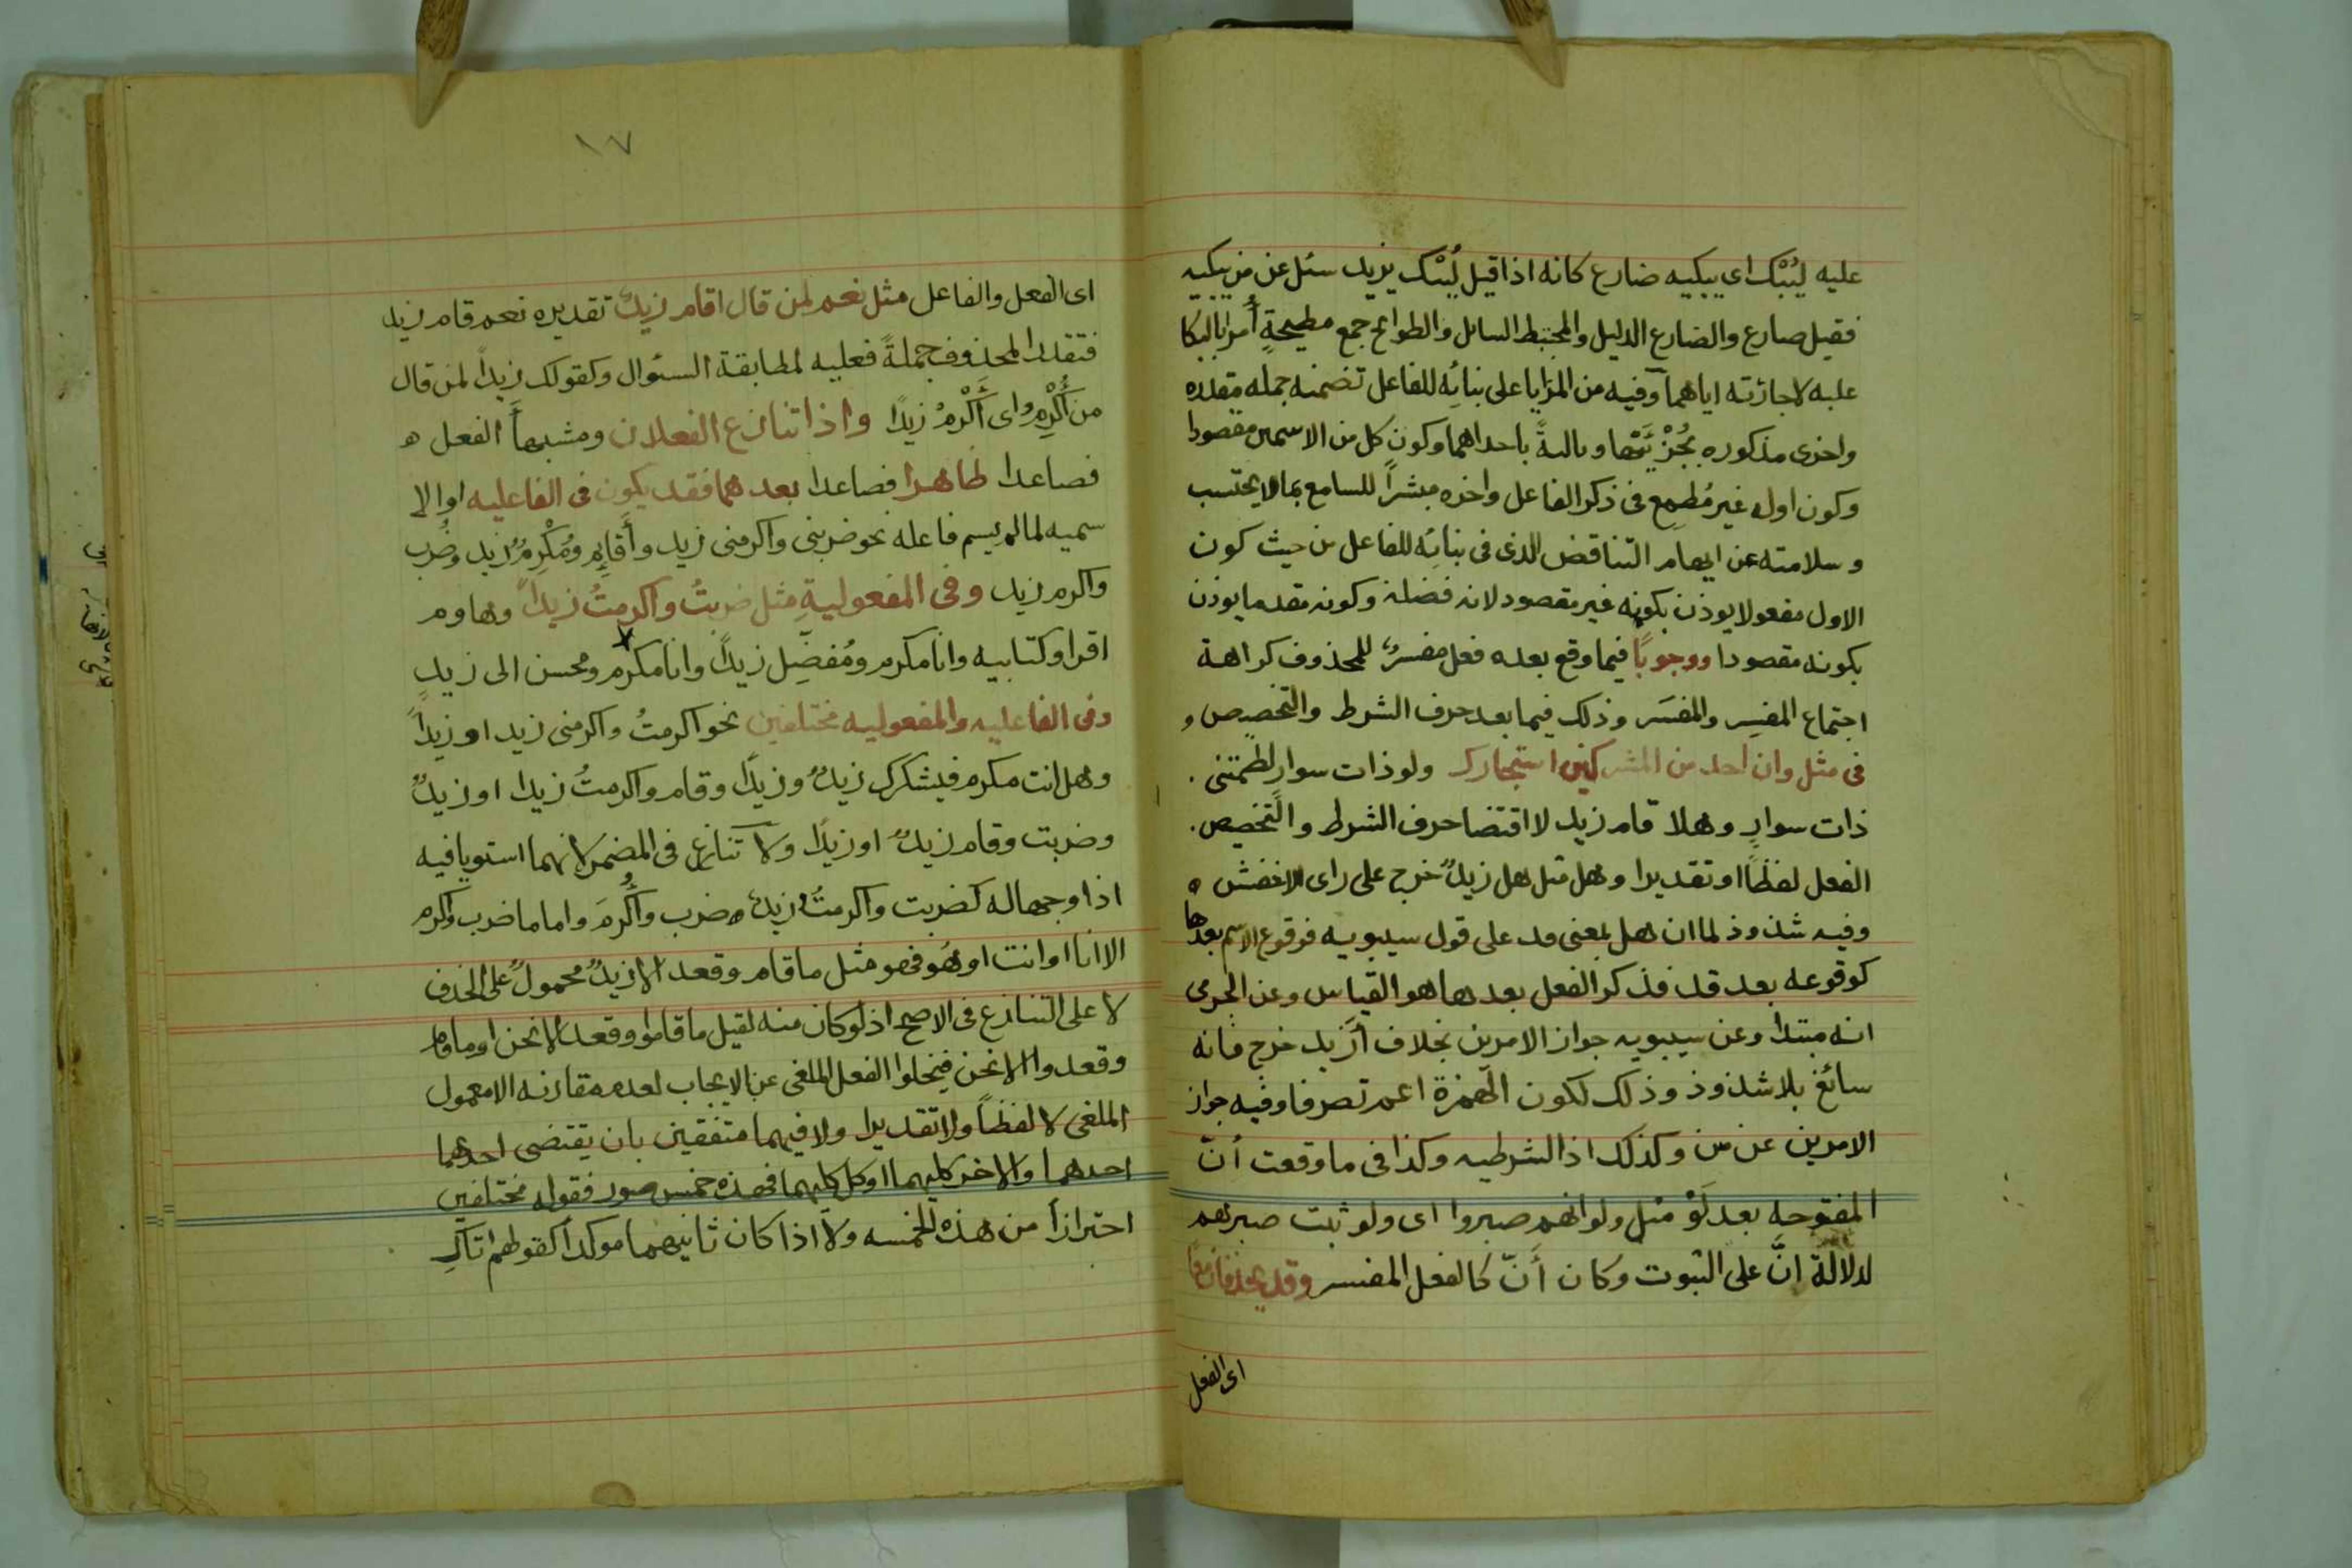 عليه ليُبْك اى يبكيه ضارع كانه اذا قيل لُيبْك يزيد سئل عن من يبكيه
فقيل ضارع والضارع الذليل والمختبط السايل والطوايح جمع مطيحةٍ أُمرا بالبكا
عليه لاجازته اياهما وفيه من المزايا على بنائِه للفاعل تضمنه جمله مقدره
واخرى مذكوره بجُزْئَيْها وكون كل من الاسمين مقصودا
وكون اوله غير مُطمِع فى ذكر الفاعل واخره مبشراً للسامع بما لا يحتسب
وسلامته عن ايهام التناقض الذى فى بنائِه للفاعل من حيث كون
الاول مفعولا يوذن بكونه غير مقصود لانه فضلة وكونه مقدما يوذن
بكونه مقصودا ووجوبًا فيما وقع بعده فعل مفسرٌ للمحذوف كراهة
اجتماع المفسِر والمفسَر وذلك فيما بعد حرف الشرط والتخصيص و
فى مثل وان احد من المشركين استجارك ولو ذات سوار لطمتنى .
ذات سوارٍ وهلا قام زيد لاقتضا حرف الشرط والتخصيص .
الفعل لفظًا او تقديرا وهل مثل هل زيدٌ خرج على راى الاخفش ه
وفيه شذوذ لما ان هل بمعنى قد على قول سيبويه فوقوع الاسم بعدها
كوقوعه بعد قد فذكر الفعل بعدها هو القياس وعن الجرمى
انه مبتدا وعن سيبويه جواز الامرين بخلاف أزيد خرج فانه
سائغ بلا شذوذ وذلك لكون الهمزة اعم تصرفا وفيه جواز
الامرين عن س وكذلك اذا الشرطيه وكذا فى ما وقعت أنّ
المفتوحه بعد لَوْ مثل ولو انهم صبروا اى ولو ثبت صبرهم
لدلالة انَّ على الثبوت وكان أَنّ كالفعل المفسر وقد يحذفان معًا
اى الفعل
١٧
اى الفعل والفاعل مثل نعم لمن قال اقام زيدٌ تقديره نعم قام زيد
فتقدر المحذوف جملةً فعليه لمطابقة السئوال وكقولك زيداً لمن قال
من أُكْرِمُ اى أَكْرِمْ زيدًا واذا تنازع الفعلان ومشبها الفعل ه
فصاعدا ظاهرا فصاعدا بعدهما فقد يكون فى الفاعليه او الا
سميه لما لم يسم فاعله نحو ضربنى واكرمنى زيد وأَقايِم ومُكْرِمٌ زيد وضُرب
واكرم زيد وفى المفعوليةِ مثل ضربتُ واكرمتُ زيداً وهاوم
اقراو كتابيه وانا مكرم ومُفضِّل زيداً وانا مكرم ومحسن الى زيدٍ
وفى الفاعليه والمفعوليه مختلفين نحو اكرمتُ واكرمنى زيد او زيداً
وهل انت مكرم فيشكرك زيدٌ وزيدًا وقام واكرمتُ زيدا او زيدٌ
وضربت وقام زيدٌ او زيدًا ولا تنازع فى المضمر لانهما استويا فيه
اذا وجها له كضربت واكرمتُ زيد ضرب وأُكْرِمَ واما ما ضرب واكرم
الا انا او انت او هُو فهو مثل ما قام وقعد الا زيدٌ محمولٌ على الحذف
لا على التنازع فى الاصح اذ لو كان منه لقيل ما قاموا وقعد الا نحن او ما قام
وقعدوا الا نحن فيخلوا الفعل الملغى عن الايجاب لعدم مقارنه الا معمول
الملغى لا لفظاً ولا تقديرا ولا فيهما متفقين بان يقتضى احدهما
احدهما والاخر كليهما او كل كليهما فهذه خمس صور فقوله مختلفين
احترازاً من هذه الخمسه ولا اذا كان ثانيهما موكداً كقولهم اتاكِ